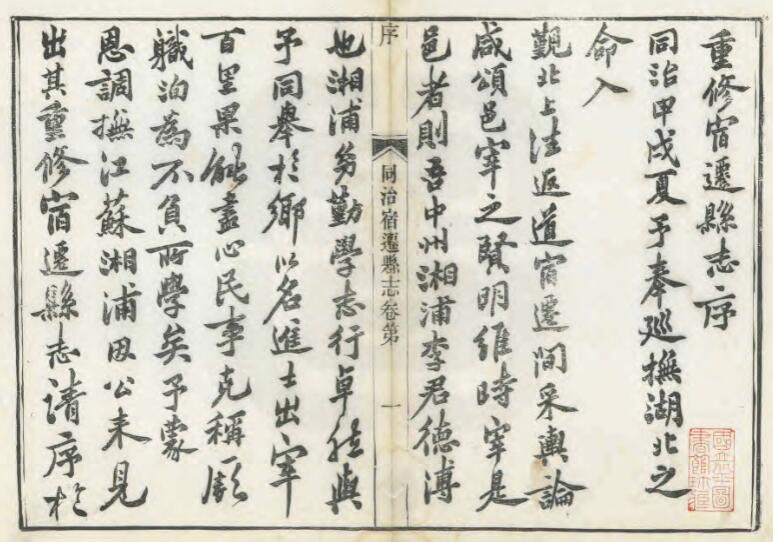 重修宿遷縣志序
同治甲戌夏予奉巡撫湖北之
命入
覲北上往返道宿遷間采輿論
咸頌邑宰之賢明維時宰是
邑者則吾中州湘浦李君德溥
序
同治宿遷縣志卷第
一
也湘浦幼勤學志行卓然與
予同舉於鄉以名進士出宰
百里果能盡心民事克稱厥
職洵為不負所學矣予蒙
恩調撫江蘇湘浦因公來見
出其重修宿遷縣志請序於